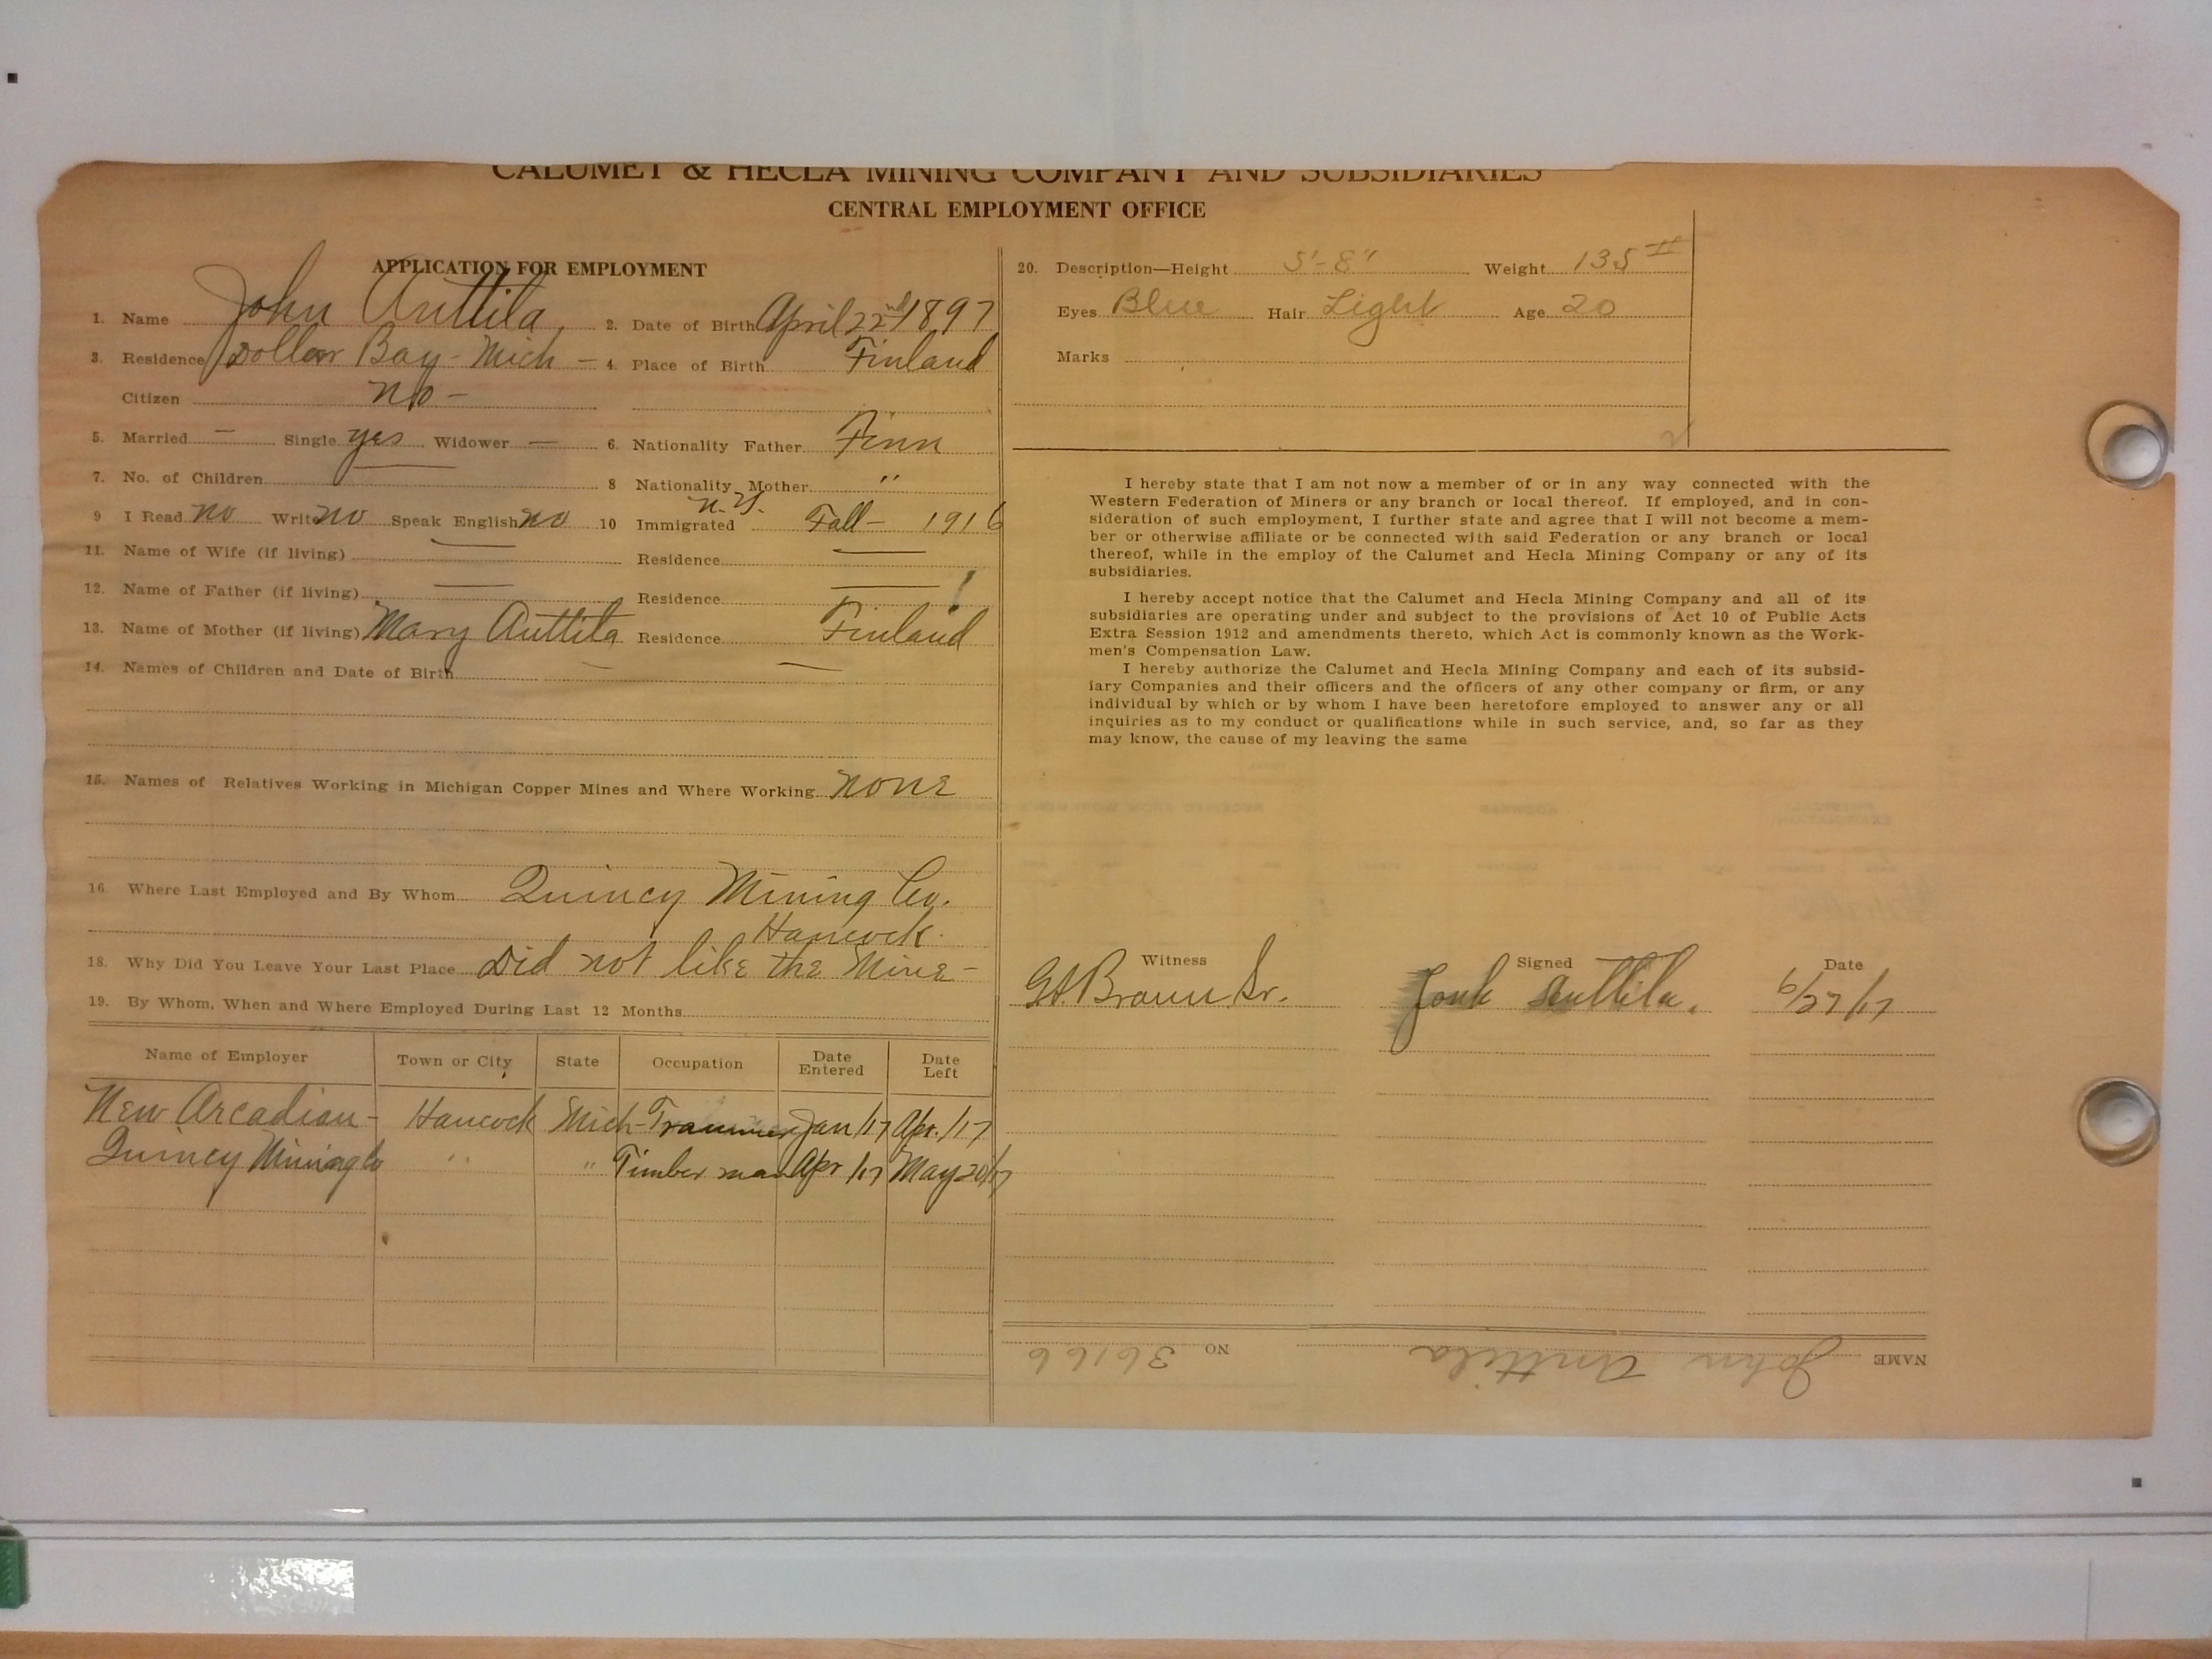 CALUMET & HECLA MINING COMPANY AND SUBSIDIARIES
CENTRAL EMPLOYMENT OFFICE
APPLICATION FOR EMPLOYMENT
1. Name John Anttila, 2. Date of Birth April 22nd 1897
3. Residence Dollar Bay - Mich - 4. Place of Birth Finland
Citizen no -
5. Married - Single yes Widower - 6. Nationality Father Finn
7. No. of Children — 8 Nationality Mother "
9 I Read no Write no Speak English no 10 Immigrated N.Y. Fall - 1916
11. Name of Wife (if living) — Residence —
12. Name of Father (if living) — Residence —
13. Name of Mother (if living) Mary Anttila Residence Finland
14. Names of Children and Date of Birth — —
15. Names of Relatives Working in Michigan Copper Mines and Where Working none
16. Where Last Employed and By Whom Quincy Mining Co.
Hancock.
18. Why Did You Leave Your Last Place Did not like the Mine -
19. By Whom, When and Where Employed During Last 12 Months
Name of Employer Town or City State Occupation Date Entered Date Left
New Arcadian - Hancock Mich - Trammer Jan/17 Apr./17
Quincy Mining Co " " Timber man Apr/17 May 20/17
20. Description—Height 5'-8" Weight 135 #
Eyes Blue Hair Light Age 20
Marks
I hereby state that I am not now a member of or in any way connected with the
Western Federation of Miners or any branch or local thereof. If employed, and in con-
sideration of such employment, I further state and agree that I will not become a mem-
ber or otherwise affiliate or be connected with said Federation or any branch or local
thereof, while in the employ of the Calumet and Hecla Mining Company or any of its
subsidiaries.
I hereby accept notice that the Calumet and Hecla Mining Company and all of its
subsidiaries are operating under and subject to the provisions of Act 10 of Public Acts
Extra Session 1912 and amendments thereto, which Act is commonly known as the Work-
men's Compensation Law.
I hereby authorize the Calumet and Hecla Mining Company and each of its subsid-
iary Companies and their officers and the officers of any other company or firm, or any
individual by which or by whom I have been heretofore employed to answer any or all
inquiries as to my conduct or qualifications while in such service, and, so far as they
may know, the cause of my leaving the same
Witness Signed Date
Braun Sr. Anttila. 6/27/17
NAME John Anttila NO 36166